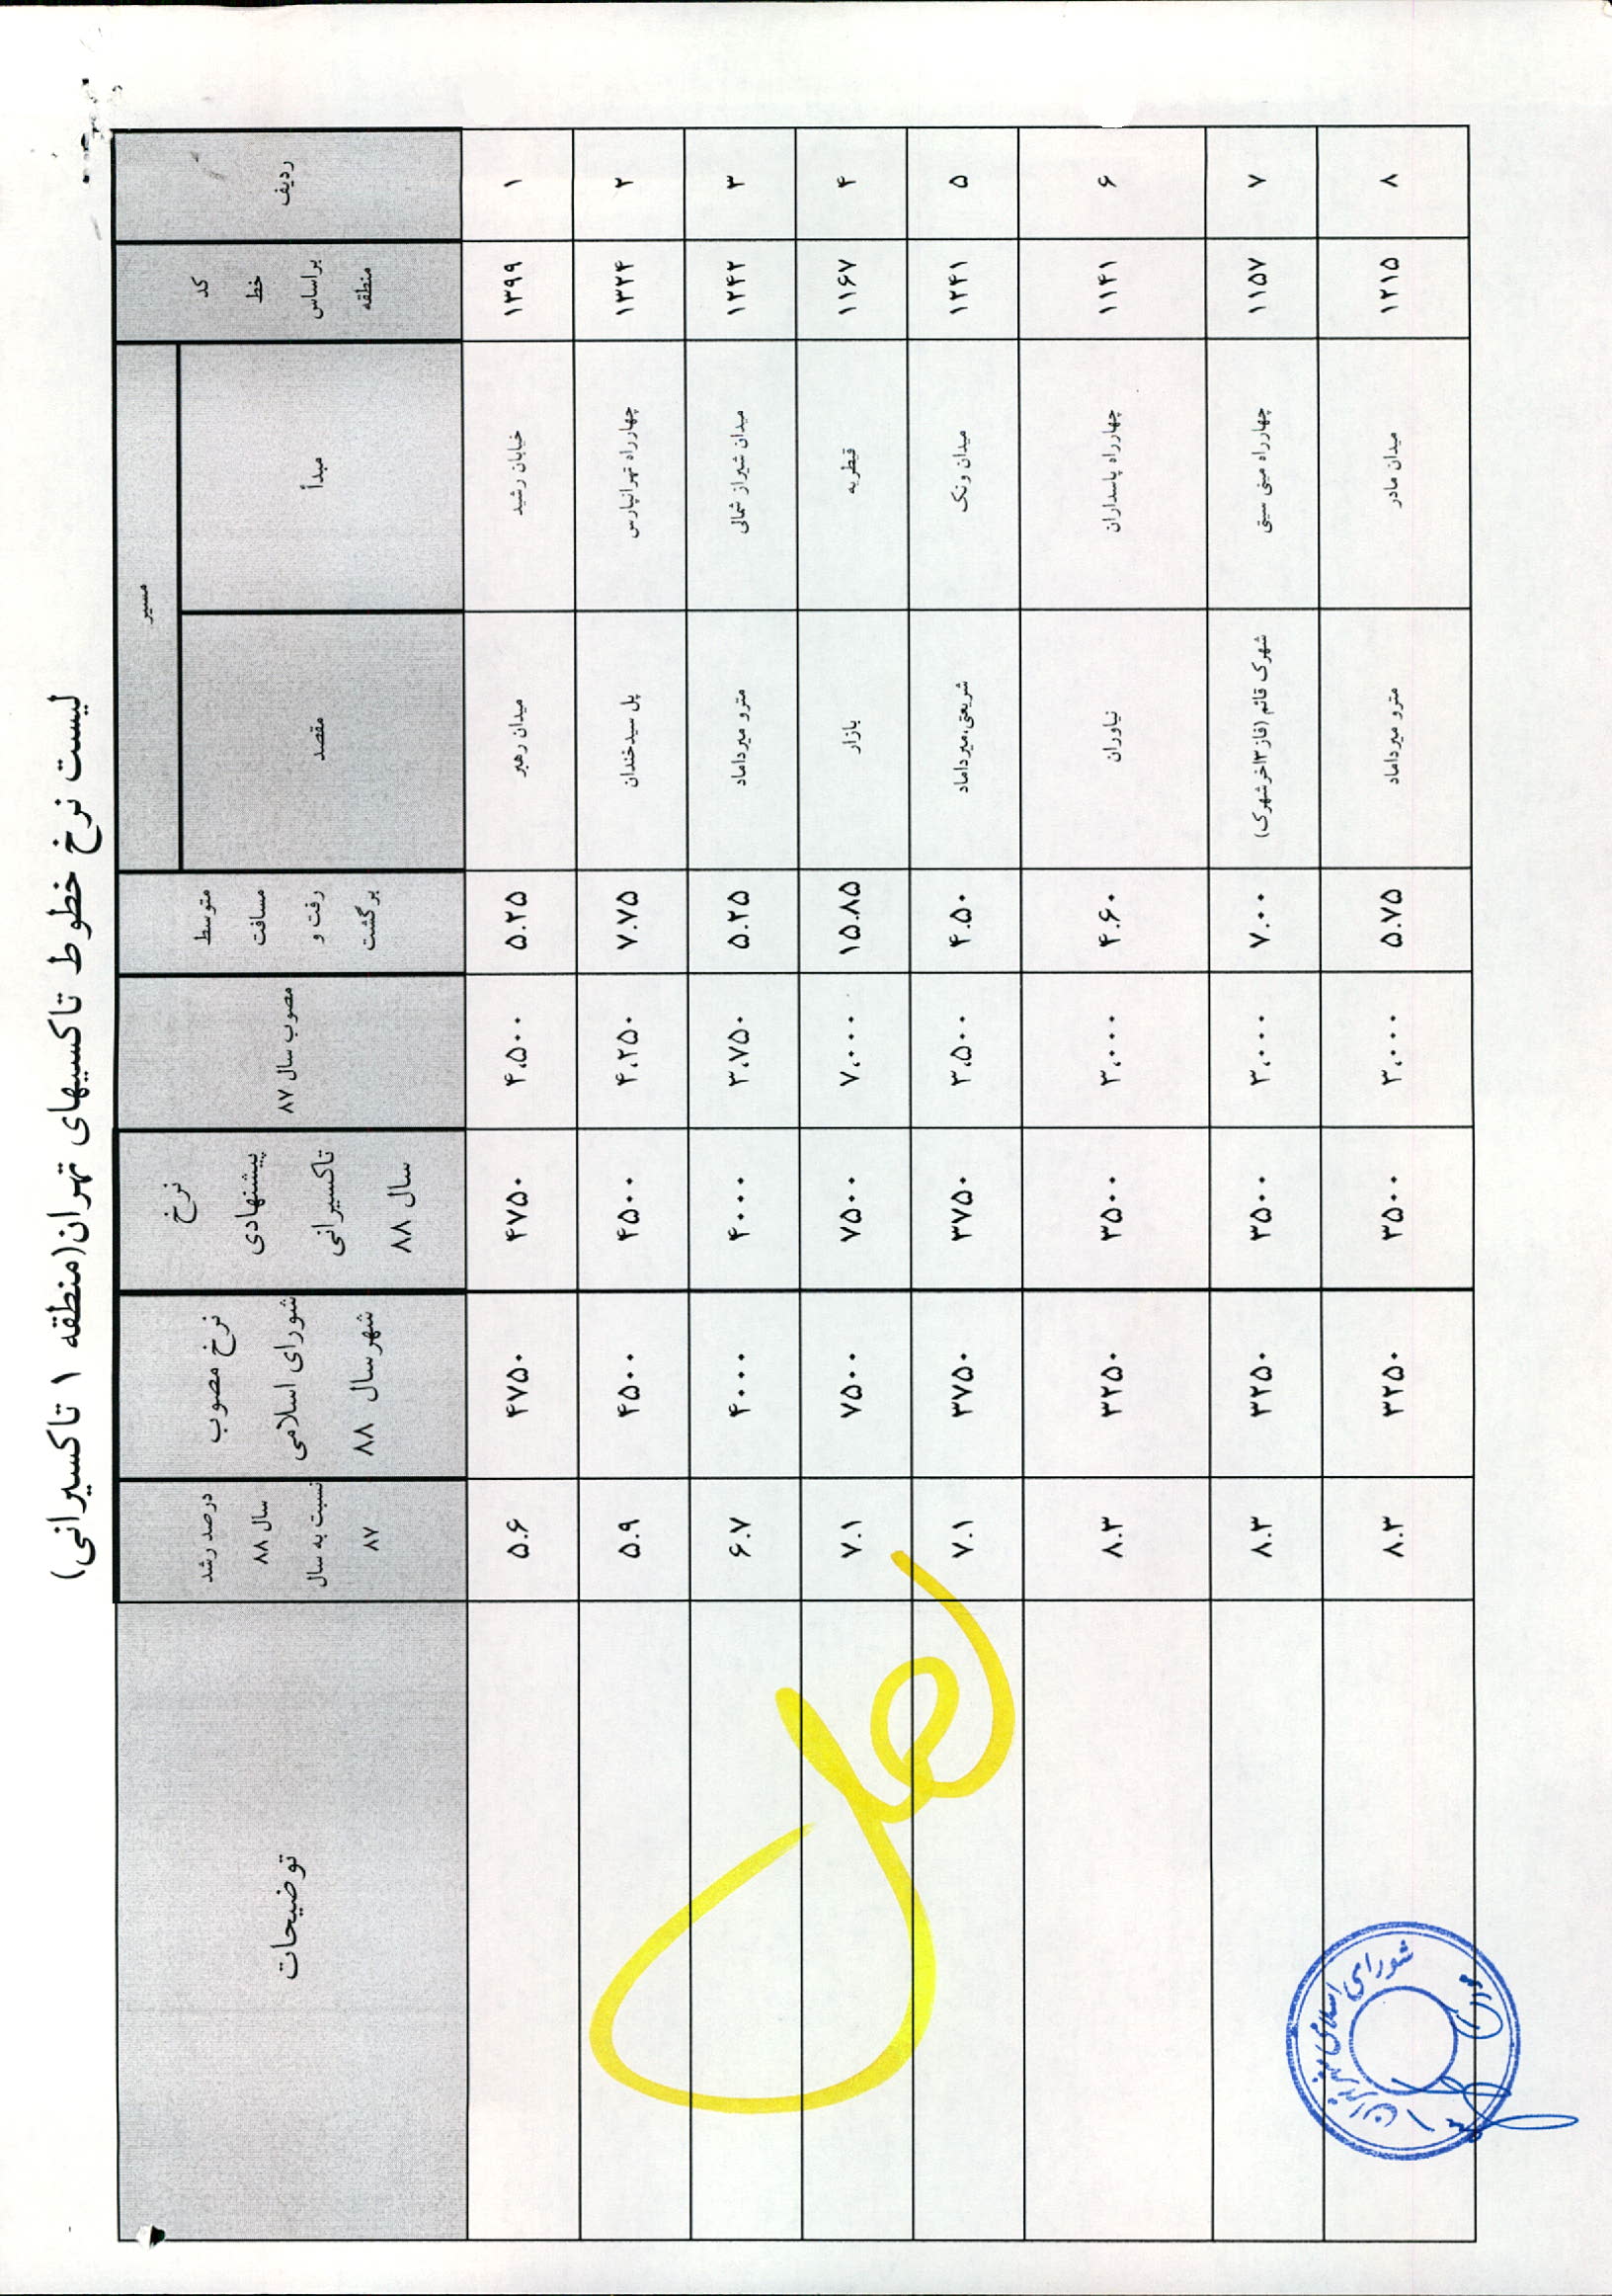 لیست نرخ خطوط تاکسیهای تهران(منطقه ۱ تاکسیرانی)
ردیف
کد خط براساس منطقه
مسیر
مبدأ
مقصد
متوسط مسافت رفت و برگشت
مصوب سال ۸۷
نرخ پیشنهادی تاکسیرانی سال ۸۸
نرخ مصوب شورای اسلامی شهر سال ۸۸
درصد رشد سال ۸۸ نسبت به سال ۸۷
توضیحات
۱ ۱۳۹۹ خیابان رشید میدان رهبر ۵.۲۵ ۴،۵۰۰ ۴۷۵۰ ۴۷۵۰ ۵.۶
۲ ۱۳۲۴ چهارراه تهرانپارس پل سیدخندان ۷.۷۵ ۴،۲۵۰ ۴۵۰۰ ۴۵۰۰ ۵.۹
۳ ۱۲۴۲ میدان شیراز شمالی مترو میرداماد ۵.۲۵ ۳،۷۵۰ ۴۰۰۰ ۴۰۰۰ ۶.۷
۴ ۱۱۶۷ قیطریه بازار ۱۵.۸۵ ۷،۰۰۰ ۷۵۰۰ ۷۵۰۰ ۷.۱
۵ ۱۲۴۱ میدان ونک شریعتی،میرداماد ۴.۵۰ ۳،۵۰۰ ۳۷۵۰ ۳۷۵۰ ۷.۱
۶ ۱۱۴۱ چهارراه پاسداران نیاوران ۴.۶۰ ۳،۰۰۰ ۳۵۰۰ ۳۲۵۰ ۸.۳
۷ ۱۱۵۷ چهارراه مینی سیتی شهرک قائم (فاز۳اخرشهرک) ۷.۰۰ ۳،۰۰۰ ۳۵۰۰ ۳۲۵۰ ۸.۳
۸ ۱۲۱۵ میدان مادر مترو میرداماد ۵.۷۵ ۳،۰۰۰ ۳۵۰۰ ۳۲۵۰ ۸.۳
شورای اسلامی شهر تهران